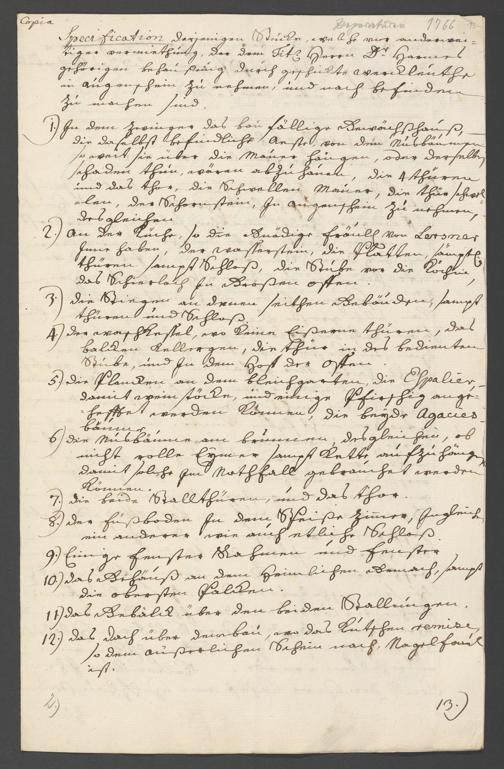 Copia
Reparaturen 1766
Specification derjenigen Stücke, welche vor anderwei-
tiger vermiethung, der dem Titl. Herrn Dr. Hermes
gehörigen behaußung durch geschickte werckleuthe
in augenschein zu nehmen, und nach befinden
zu machen sind.
1.) In dem Zwinger das bau fällige Gewächßhauß,
die daselbst befindliche Aeste von den Nusbäumen
so weit sie über die Mauer hängen, oder derselben
schaden thun, wären abzuhauen, die 4 thüren
und das thor, die Schwellen Mauer, die thür
der Schornstein, In augenschein zu nehmen,
desgleichen
2.) an der Küche, so die Gnädige Fräull. von Lersner
Inne haben, der wasserstein, die Platten, sämptl.
thüren sampt Schloß, die Stube vor die Köchin,
das In Großen offen.
3.) die Stiegen an denen seithen Gebäuden, sampt
thüren und Schloß.
4.) der waschkessel, wo keine Eißerne thüren, das
balcken die thür in des bedienten
Stube, und In dem Hoff der offen.
5.) die Plancken an dem bleichgarten, die Espalier,
damit weinstöcke, und einige Pfirschig ange-
hefftet werden können, die beyde Agacies-
bäume.
6.) die Nusbäume am brunnen, desgleichen, ob
nicht volle Eymer sampt Kette aufzuhängen
damit solche Im Nothfall gebrauchet werden
können.
7.) die beide Stallthüren, und das thor.
8.) der Fußboden In dem Speiße Zimmer, Ingleich
ein anderer wie auch etliche Schloß.
9.) Einige Fenster Rahmen und Fenster
10.) das Gehäuß an dem Heimlichen Gemach, sampt
die obersten Balcken.
11.) das Gebälck über den beiden Stallungen.
12.) das dach über dem bau, wo das Kutschen remise,
so dem äußerlichen Schein nach, Nagelfaul
ist.
2)
13.)